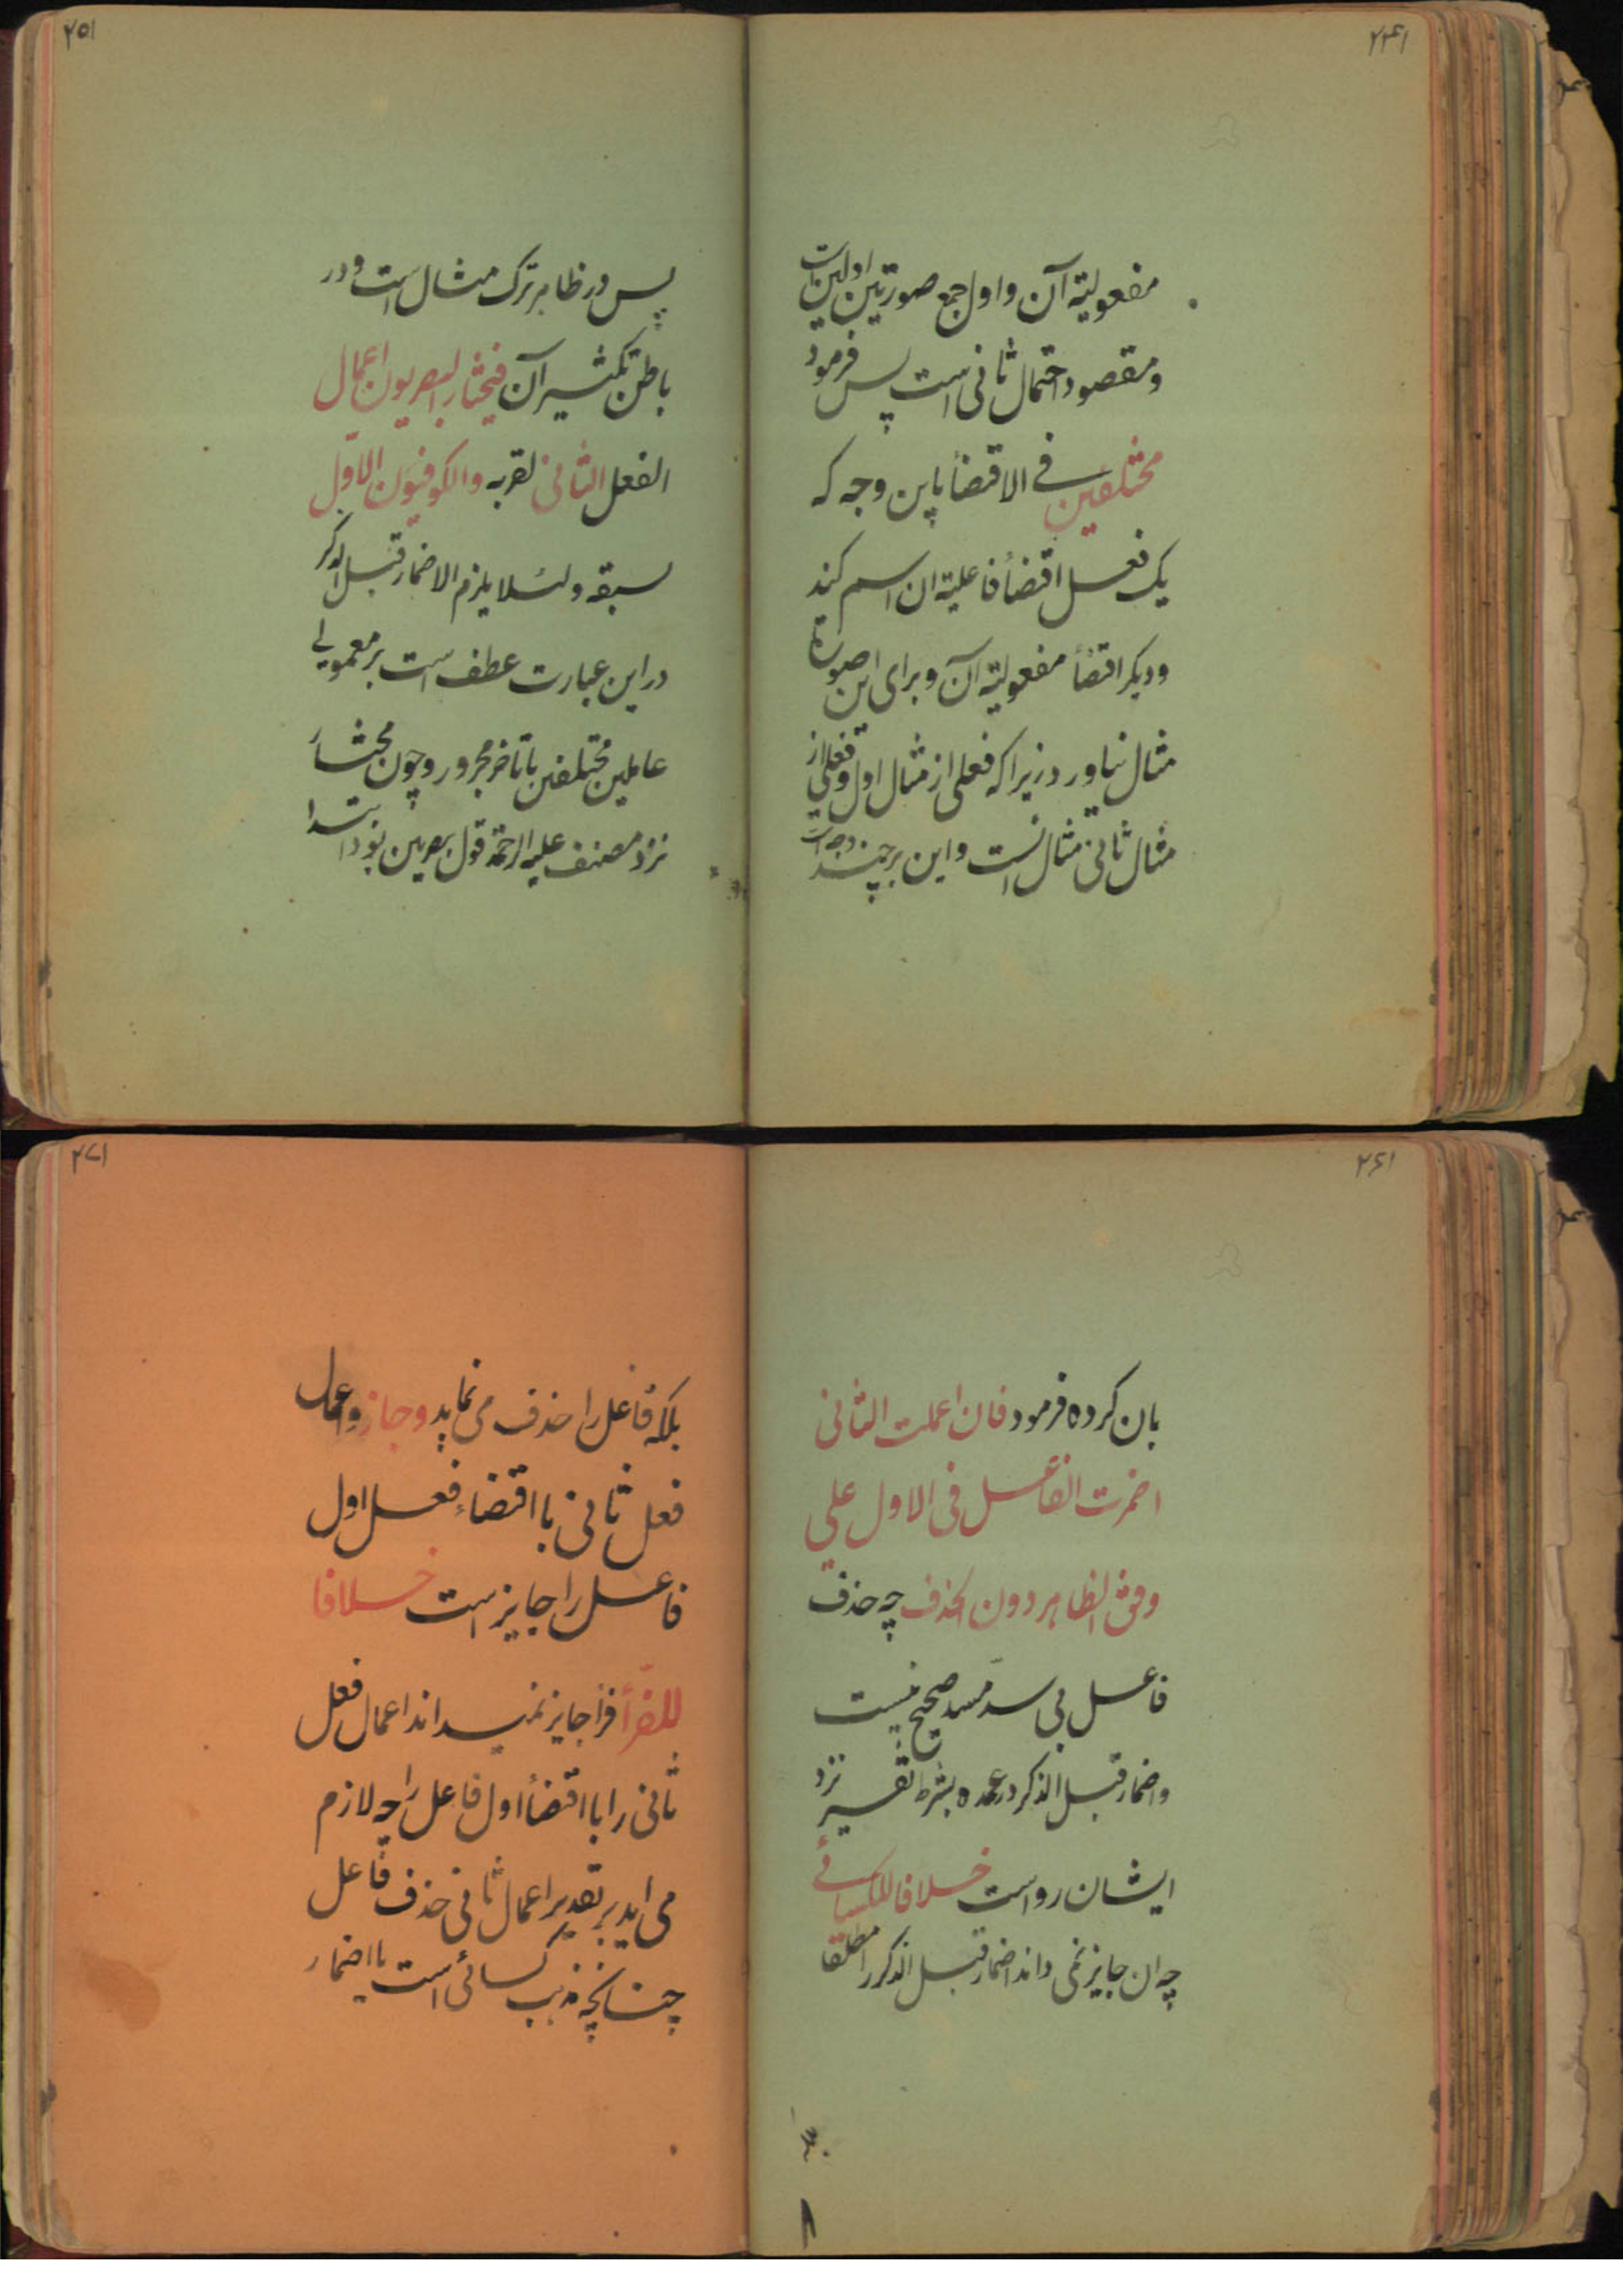 ۲۴۱
مفعولیة آن و اول جمع صورتین اولین است
و مقصود احتمال ثانی است پس فرمود
مختلفین فی الاقتضأ باین وجه که
یک فعل اقتضأ فاعلیة ان اسم کند
و دیکر اقتضأ مفعولیة آن و برای این صورة
مثال نیاورد زیرا که فعلی از مثال اول و فعلی از
مثال ثانی مثال انست و این بر چند وجه است
۲۵۱
پس در ظاهر ترک مثال است و در
باطن تکثیر آن فیختار البصریون اعمال
الفعل الثانی لقربه والکوفیون الاوّل
لسبقه و لئلا یلزم الاضمار قبل الذکر
در این عبارت عطف است بر معمولی
عاملین مختلفین با تاخر مجرور و چون مختار
نزد مصنف علیه الرحمة قول بصریین بود ابتدا
۲۶۱
بان کرده فرمود فان اعملت الثانی
اضمرت الفاعل فی الاول علی
وفق الظاهر دون الحذف چه حذف
فاعل بی سدّ مسد صحیح نیست
و اضمار قبل الذکر در عمده بشرط تفسیر نزد
ایشان رواست خلافا للکسائی
چه ان جایز نمی داند اضمار قبل الذکر را مطلقا
۲۷۱
بلکه فاعل را حذف می نماید و جاز و اعمال
فعل ثانی با اقتضاء فعل اول
فاعل را جایز است خلافا
للفرّأ فرأ جایز نمیداند اعمال فعل
ثانی را با اقتضأ اول فاعل را چه لازم
می اید بر تقدیر اعمال ثانی حذف فاعل
چنانکچه مذهب کسائی است یا اضمار